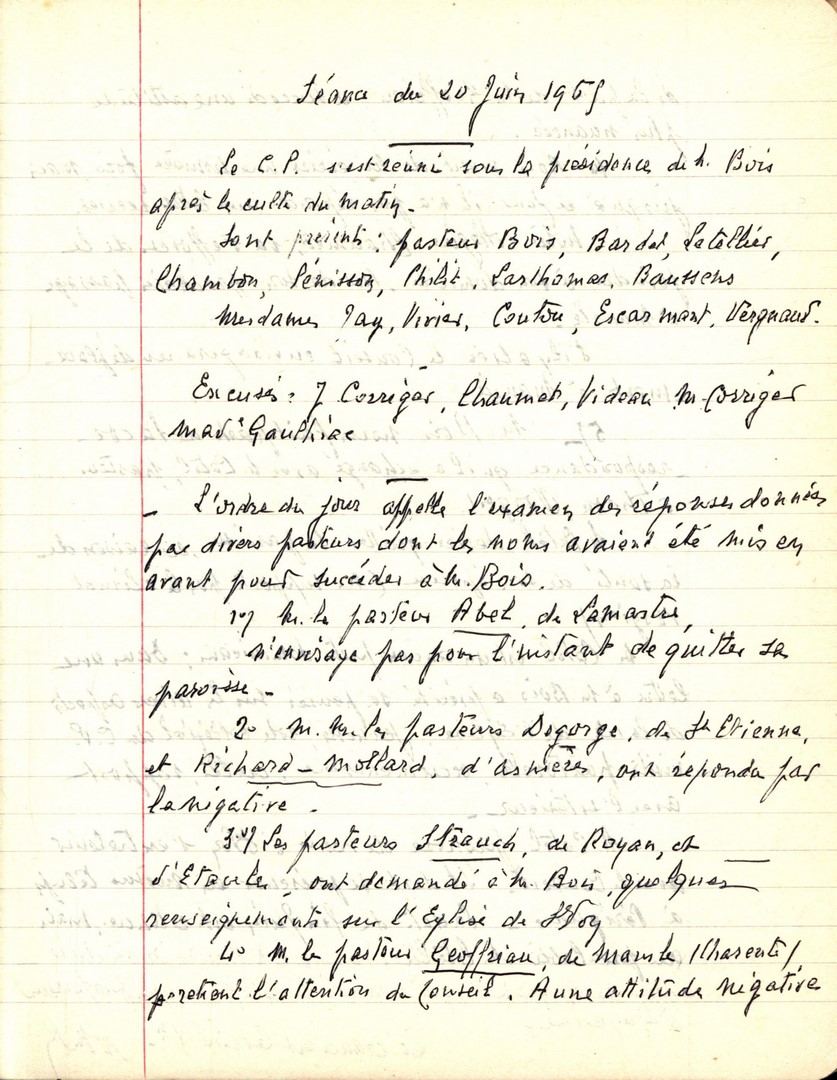 Séance du 20 Juin 1965
Le C.P. s'est réuni sous la présidence de M. Bois
après le culte du matin.
Sont présents : pasteur Bois, Bardet, Letellier,
Chambon, Pénisson, Philit, Lasthomas, Baussens
Mesdames Jay, Vivier, Couton, Escarmant, Vergnaud.
Excusés : J Corriger, Chaumet, Videau M. Corriger
Made Gauthier
- L'ordre du jour appelle l'examen des réponses données
par divers pasteurs dont les noms avaient été mis en
avant pour succéder à M. Bois.
1°/ M. le pasteur Abel, de Lamastre,
n'envisage pas pour l'instant de quitter sa
paroisse -
2° M. M. les pasteurs Degorge, de St Etienne,
et Richard-Mollard, d'Asnières, ont répondu par
la négative.
3°/ Les pasteurs Strauch, de Royan, et
d'Etaules, ont demandé à M. Bois, quelques
renseignements sur l'Eglise de Ste Foy
4° M. le pasteur Geoffriau, de Mansle (Charente)
retient l'attention du Conseil. A une attitude négative